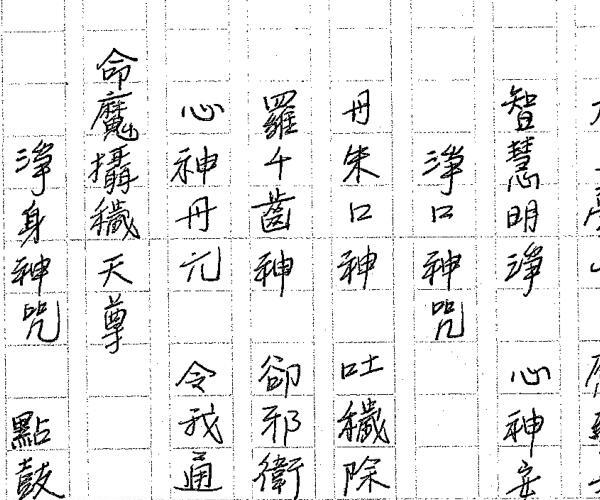 智慧明淨 心神安
淨口神咒
丹朱口神 吐穢除
羅千齒神 卻邪衛
心神丹元 令我通
命魔攝穢天尊
淨身神咒 點鼓